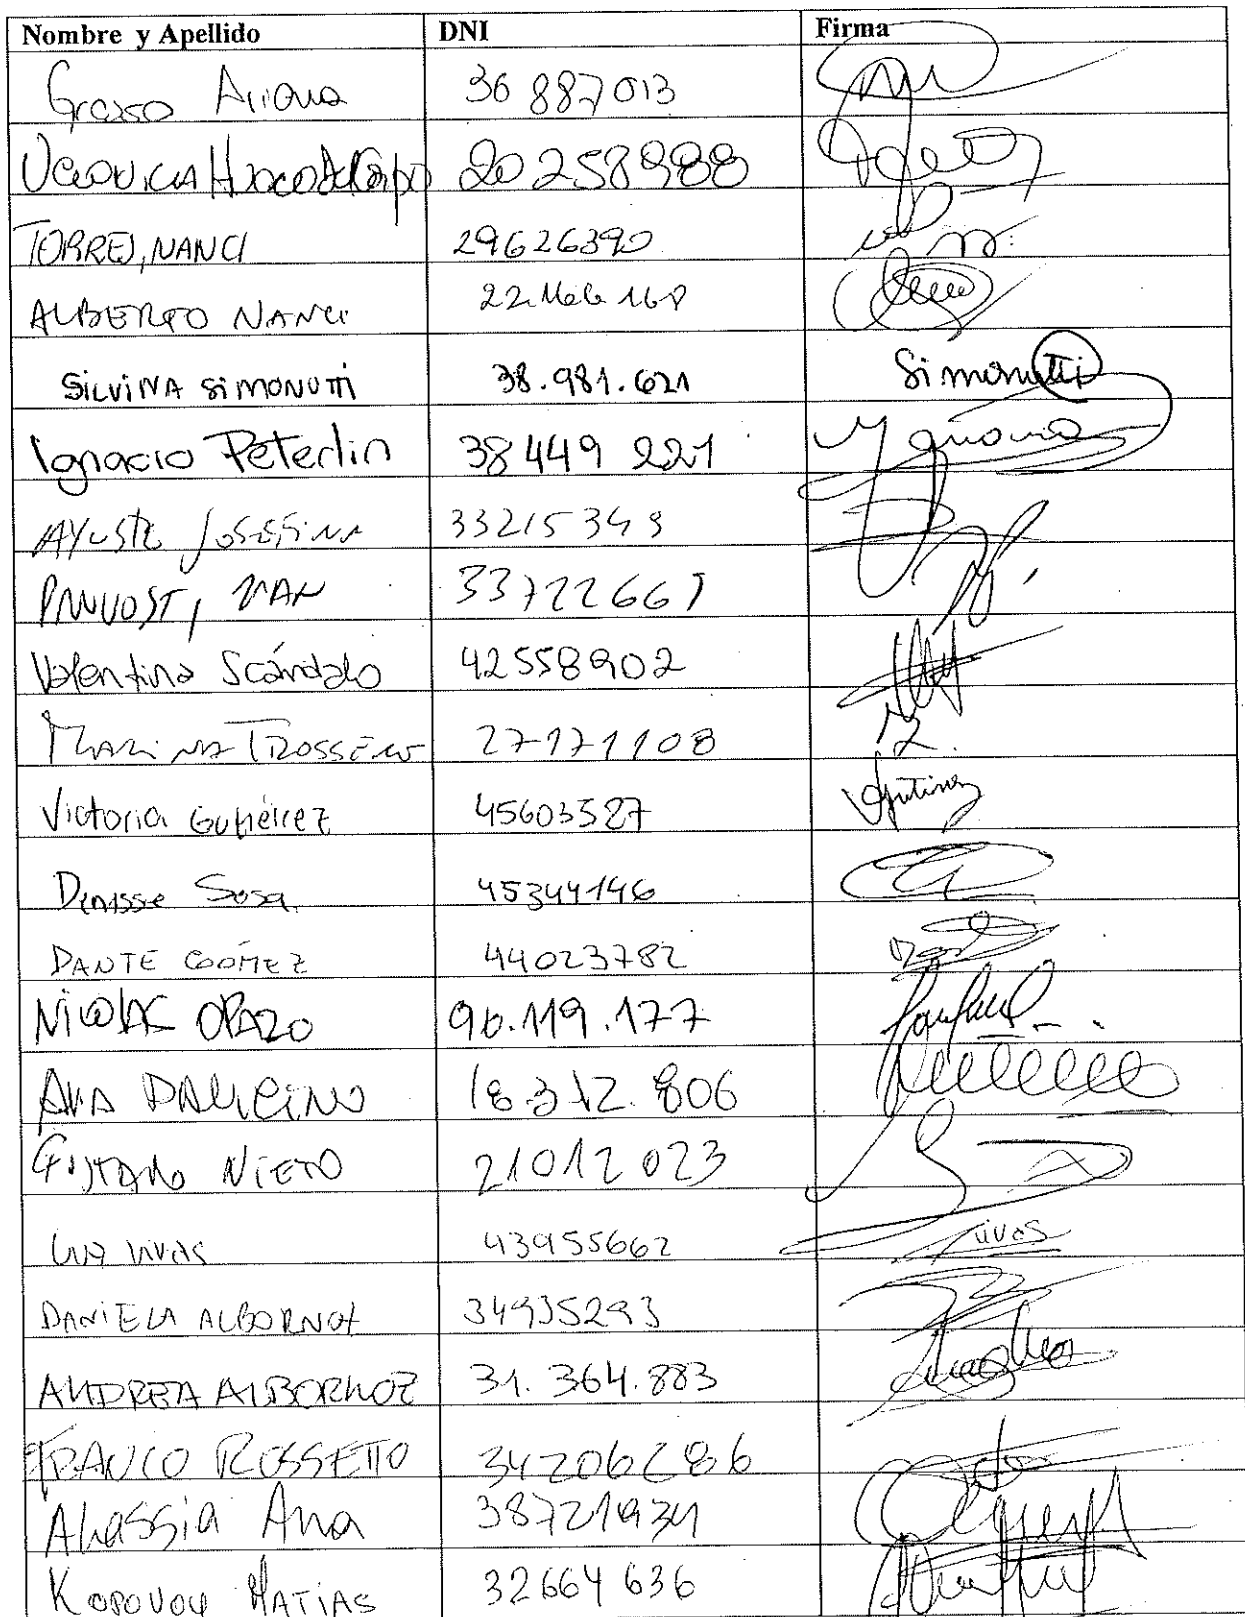 Nombre y Apellido DNI Firma
Grasso Ariana 36 887013
Veronica H 20 258988
TORRES, NANCI 29626390
ALBERTO NANCI
SiLViNA SiMONUTTi 38.981.621 Simonutti
Ignacio Peterlin 38 449 221 Ignacio
AYUSTE JOSEFINA 33215349
33722667
Valentina Scándalo 42558902
MARINA TROSSERO 27171108
Victoria Gutiérrez 45603527 VGutierrez
Denisse Sosa 45344146
DANTE GOOMEZ 44023782
NICOLAS OPAZO 96.119.177
ANA 18.312.806
GUSTAVO NIETO 21012023
Luz vivas 43955662 vivas
DANiELA ALBORNOZ 34935293
ANDREA ALBORNOZ 31.364.883
FRANCO ROSSETTO 34206286
Alassia Ana 38721934
MATiAS 32664636